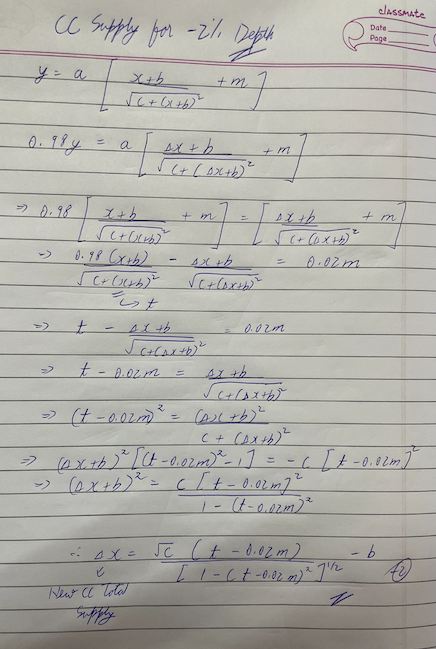 classmate
Date
Page
CC Supply for -2% Depth
y = a [ (x+b)/√(c+(x+b)²) + m ]
0.98y = a [ (Δx+b)/√(c+(Δx+b)²) + m ]
⇒ 0.98 [ (x+b)/√(c+(x+b)²) + m ] = [ (Δx+b)/√(c+(Δx+b)²) + m ]
⇒ 0.98(x+b)/√(c+(x+b)²) - (Δx+b)/√(c+(Δx+b)²) = 0.02m
↳ t
⇒ t - (Δx+b)/√(c+(Δx+b)²) = 0.02m
⇒ t - 0.02m = (Δx+b)/√(c+(Δx+b)²)
⇒ (t-0.02m)² = (Δx+b)²/(c+(Δx+b)²)
⇒ (Δx+b)² [(t-0.02m)²-1] = -c [t-0.02m]²
⇒ (Δx+b)² = c[t-0.02m]²/(1-(t-0.02m)²)
∴ Δx = √c (t-0.02m)/[1-(t-0.02m)²]^1/2 - b
New CC Total
Supply